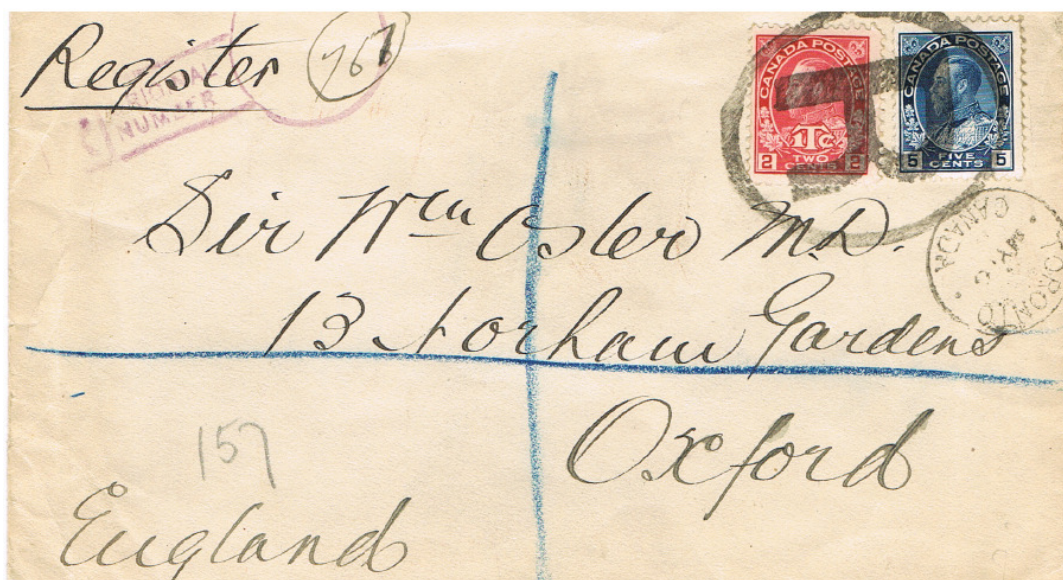 Register
767
ORIGINAL
NUMBER
CANADA POSTAGE
1Tc
2 TWO CENTS 2
CANADA POSTAGE
5 FIVE CENTS 5
TORONTO
CANADA
Sir Wm Osler M.D.
13 Norham Gardens
Oxford
157
England